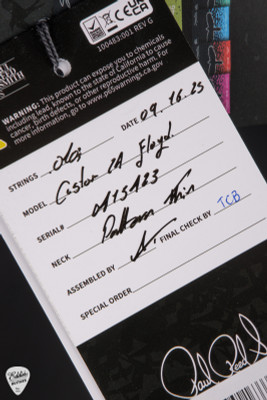 100483:001 REV G
WARNING: This product can expose you to chemicals
including lead, known to the state of California to cause
cancer, birth defects, or other reproductive harm. For
more information, go to www.p65warnings.ca.gov
STRINGS DATE 09.16.25
MODEL Custom 24 Floyd
SERIAL# 0413423
NECK Pattern Thin
ASSEMBLED BY FINAL CHECK BY TCB
SPECIAL ORDER
Paul Reed